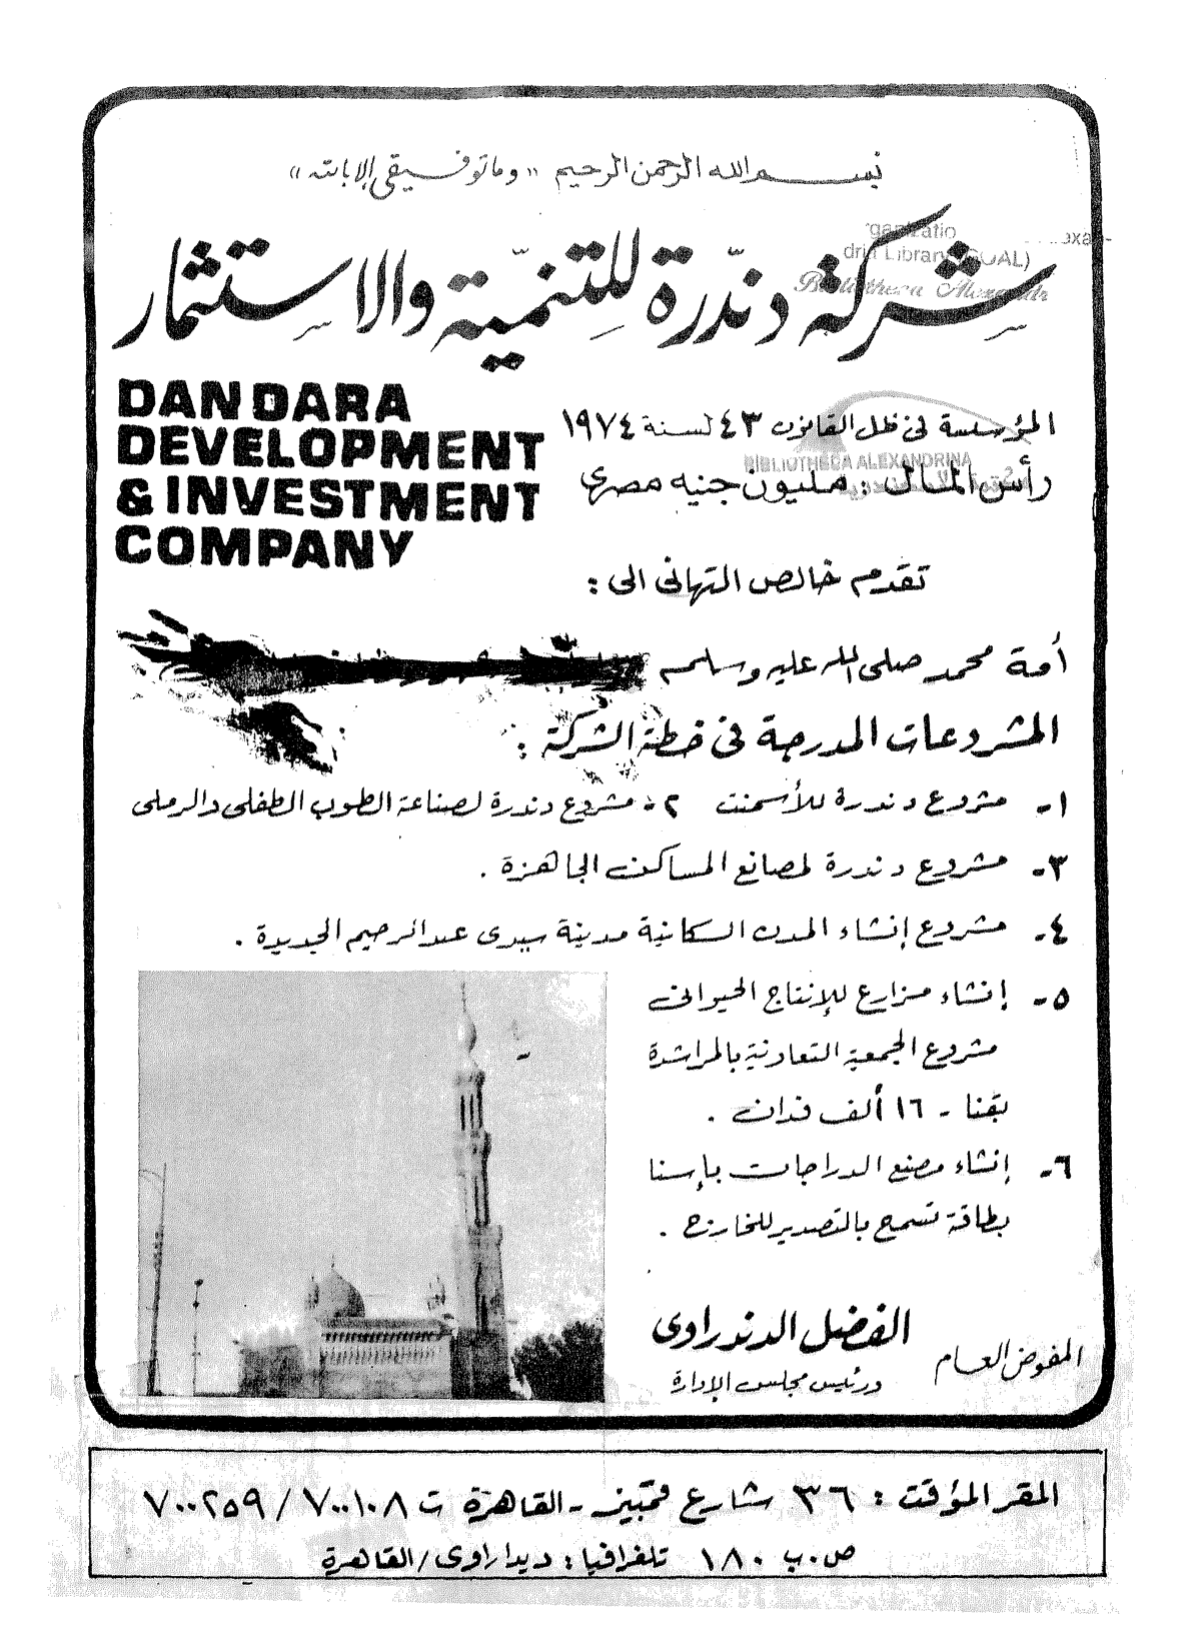 بسم الله الرحمن الرحيم «وما توفيقى إلا بالله»
شركة دندرة للتنمية والاستثمار
DANDARA
DEVELOPMENT
& INVESTMENT
COMPANY
المؤسسة فى ظل القانون ٤٣ لسنة ١٩٧٤
BIBLIOTHECA ALEXANDRINA
رأس المال : مليون جنيه مصرى
تقدم خالص التهانى الى :
أمة محمد صلى الله عليه وسلم
المشروعات المدرجة فى خطة الشركة :
١- مشروع دندرة للأسمنت ٢- مشروع دندرة لصناعة الطوب الطفلى والرملى
٣- مشروع دندرة لمصانع المساكن الجاهزة .
٤- مشروع إنشاء المدن السكانية مدينة سيدى عبد الرحيم الجديدة .
٥- إنشاء مزارع للإنتاج الحيوانى
مشروع الجمعية التعاونية بالمراشدة
بقنا - ١٦ ألف فدان .
٦- إنشاء مصنع الدراجات بإسنا
بطاقة تسمح بالتصدير للخارج .
المفوض العام
الفضل الدندراوى
ورئيس مجلس الإدارة
المقر المؤقت : ٣٦ شارع قمبيز - القاهرة ت ٧٠٠١٠٨ / ٧٠٠٢٥٩
ص . ب ١٨٠ تلغرافيا : ديداراوى / القاهرة